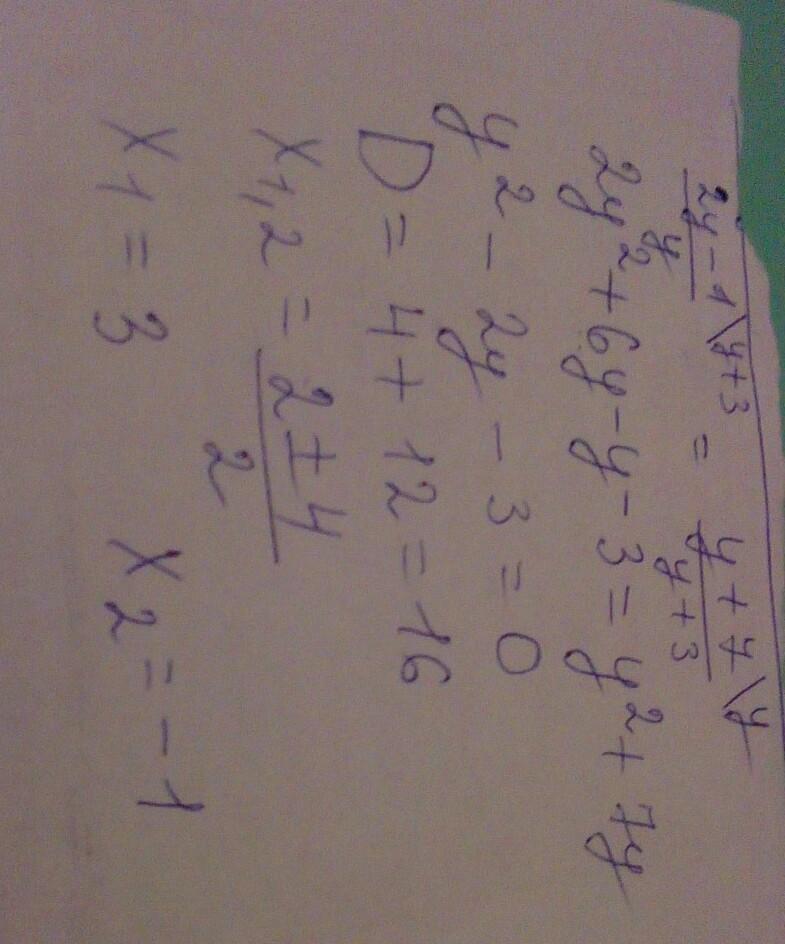 2y-1\y+3 / y = y+7\y / y+3
2y²+6y-y-3=y²+7y
y²-2y-3=0
D=4+12=16
x1,2=2±4/2
x1=3 x2=-1